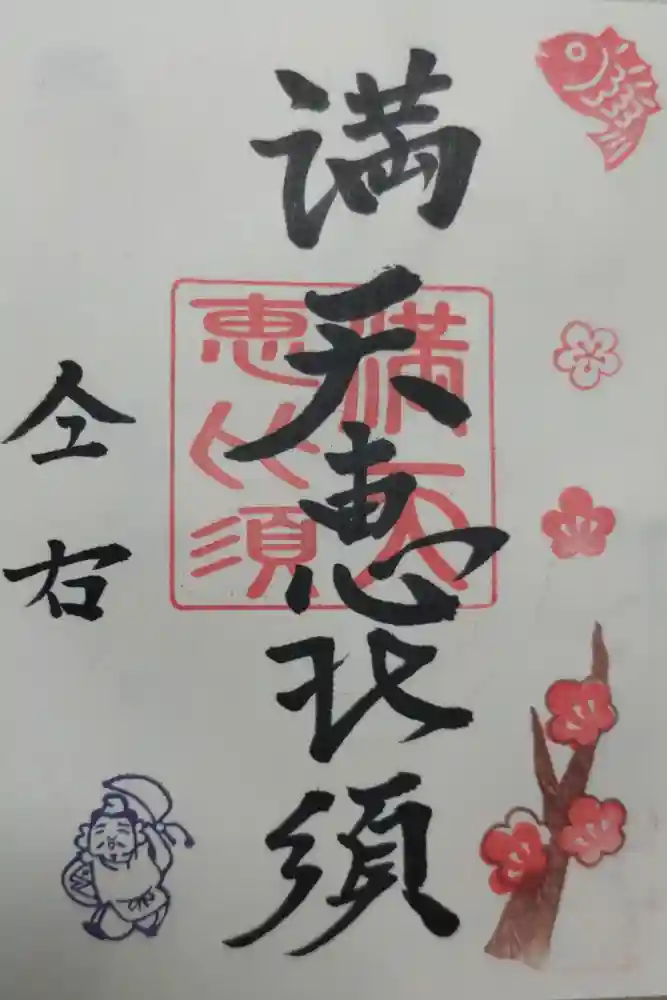 満天恵比須
満天
恵比須
仝右